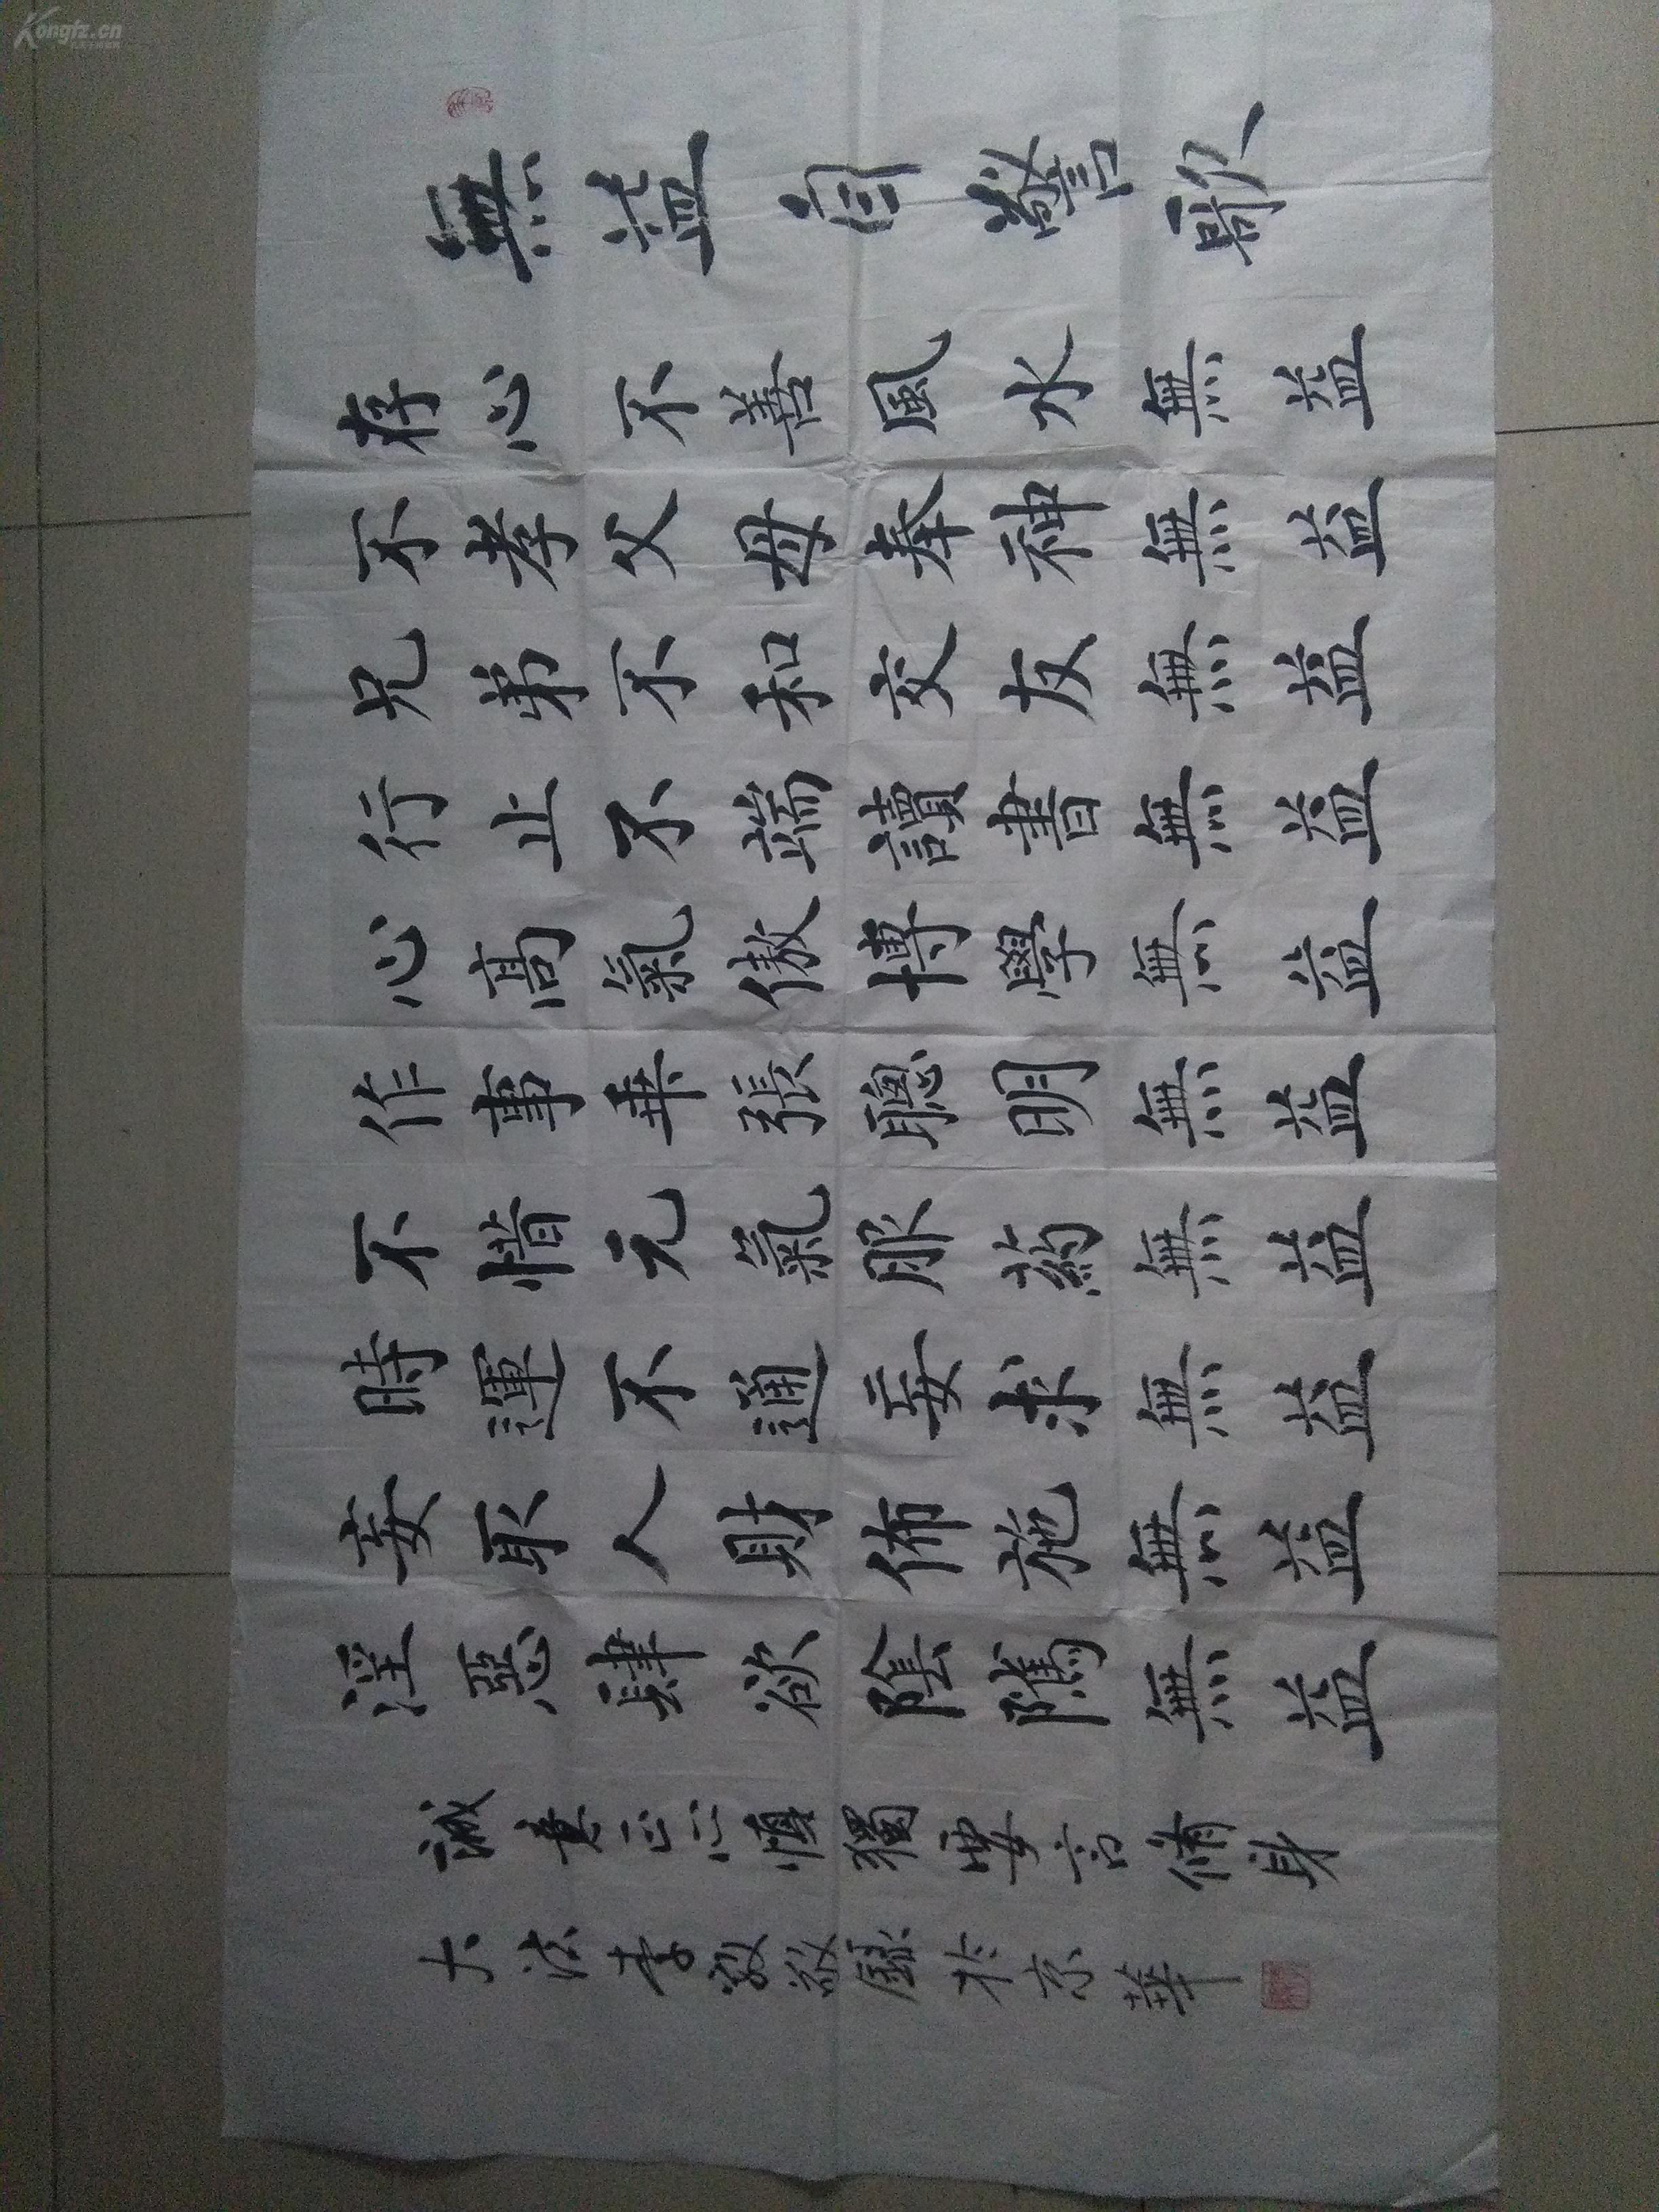 無益自警歌
存心不善風水無益
不孝父母奉神無益
兄弟不和交友無益
行止不端讀書無益
心高氣傲博學無益
作事乖張聰明無益
不惜元氣服药無益
時運不通妄求無益
妄取人財佈施無益
淫惡肆欲陰隲無益
誠意正心慎獨 言修身
大法 敬錄於京華
Kongfz.cn